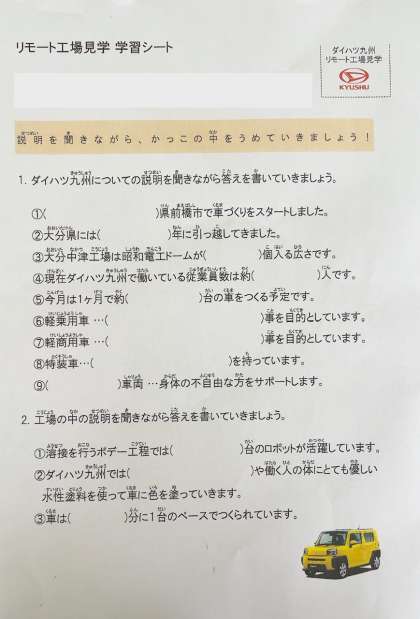 リモート工場見学 学習シート
ダイハツ九州
リモート工場見学
KYUSHU
説明を聞きながら、かっこの中をうめていきましょう！
1. ダイハツ九州についての説明を聞きながら答えを書いていきましょう。
①( )県前橋市で車づくりをスタートしました。
②大分県には( )年に引っ越してきました。
③大分中津工場は昭和電工ドームが( )個入る広さです。
④現在ダイハツ九州で働いている従業員数は約( )人です。
⑤今月は1ヶ月で約( )台の車をつくる予定です。
⑥軽乗用車 …( )事を目的としています。
⑦軽商用車 …( )事を目的としています。
⑧特装車…( )を持っています。
⑨( )車両 …身体の不自由な方をサポートします。
2. 工場の中の説明を聞きながら答えを書いていきましょう。
①溶接を行うボデー工程では( )台のロボットが活躍しています。
②ダイハツ九州では( )や働く人の体にとても優しい
水性塗料を使って車に色を塗っていきます。
③車は( )分に1台のペースでつくられています。